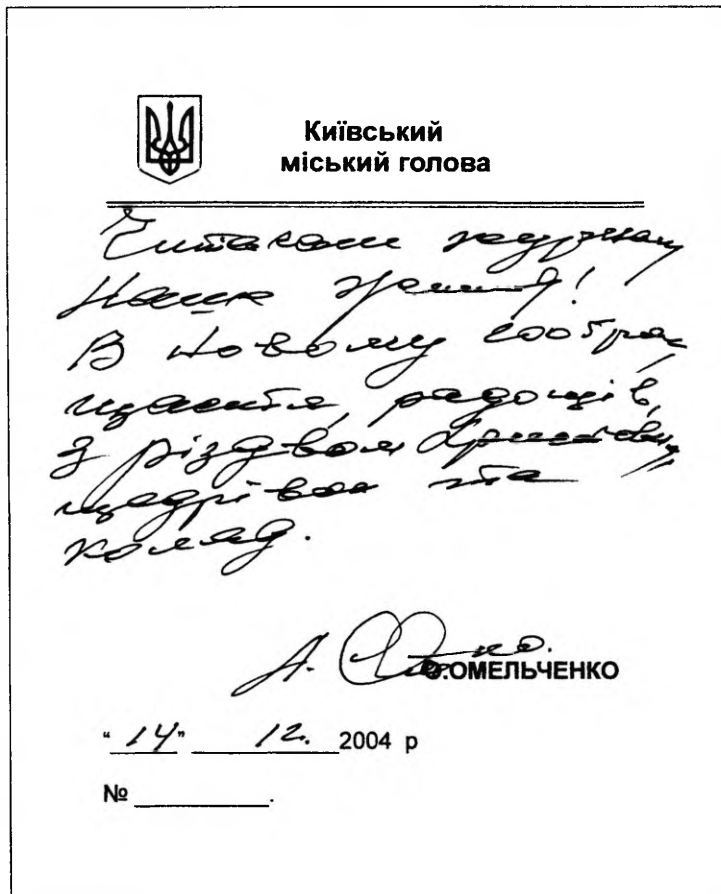 Київський
міський голова
Читачам журналу
Наше !
В новому році добра,
щастя, радощів,
з різдвом Христовим,
щедрівок та
коляд.
О.ОМЕЛЬЧЕНКО
"14" 12. 2004 р
№ .